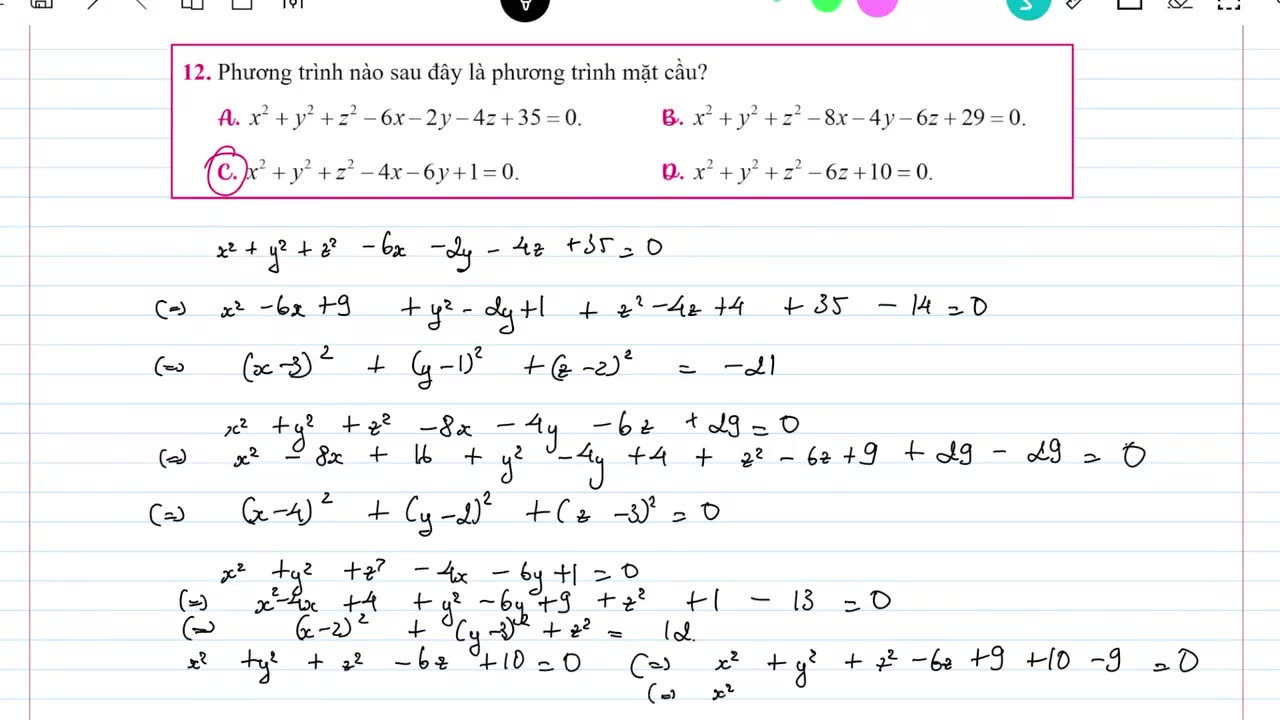 12. Phương trình nào sau đây là phương trình mặt cầu?
A. x² + y² + z² − 6x − 2y − 4z + 35 = 0. B. x² + y² + z² − 8x − 4y − 6z + 29 = 0.
C. x² + y² + z² − 4x − 6y + 1 = 0. D. x² + y² + z² − 6z + 10 = 0.
x² + y² + z² − 6x − 2y − 4z + 35 = 0
(=) x² − 6x + 9 + y² − 2y + 1 + z² − 4z + 4 + 35 − 14 = 0
(=) (x − 3)² + (y − 1)² + (z − 2)² = −21
x² + y² + z² − 8x − 4y − 6z + 29 = 0
(=) x² − 8x + 16 + y² − 4y + 4 + z² − 6z + 9 + 29 − 29 = 0
(=) (x − 4)² + (y − 2)² + (z − 3)² = 0
x² + y² + z² − 4x − 6y + 1 = 0
(=) x² − 4x + 4 + y² − 6y + 9 + z² + 1 − 13 = 0
(=) (x − 2)² + (y − 3)² + z² = 12
x² + y² + z² − 6z + 10 = 0 (=) x² + y² + z² − 6z + 9 + 10 − 9 = 0
(=) x²